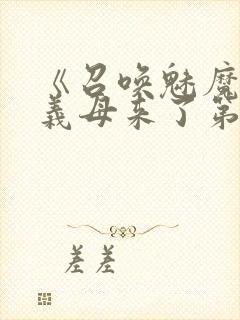 《召唤魅魔
义母来了第
差差